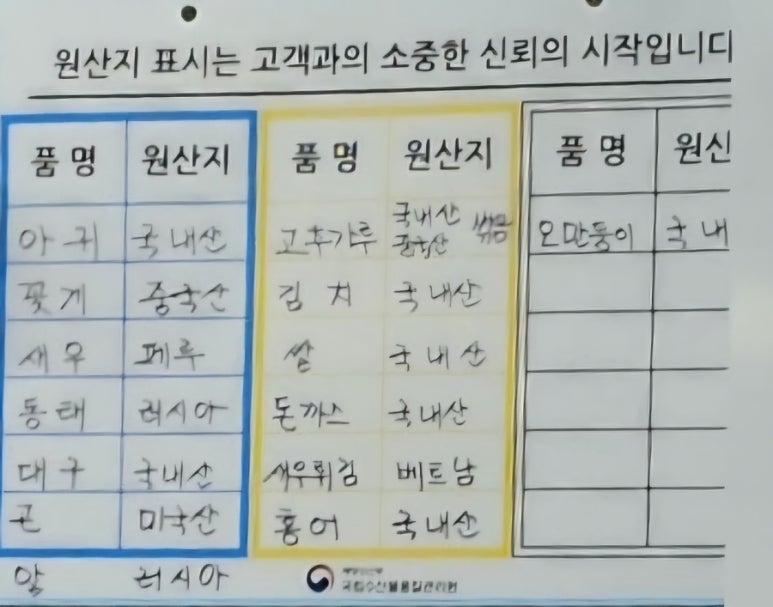 원산지 표시는 고객과의 소중한 신뢰의 시작입니다
품명 원산지
아귀 국내산
꽃게 중국산
새우 페루
동태 러시아
대구 국내산
곤 미국산
알 러시아
품명 원산지
고추가루 국내산 중국산 섞음
김치 국내산
쌀 국내산
돈까스 국내산
새우튀김 베트남
홍어 국내산
국립수산물품질관리원
품명 원산
오만둥이 국내